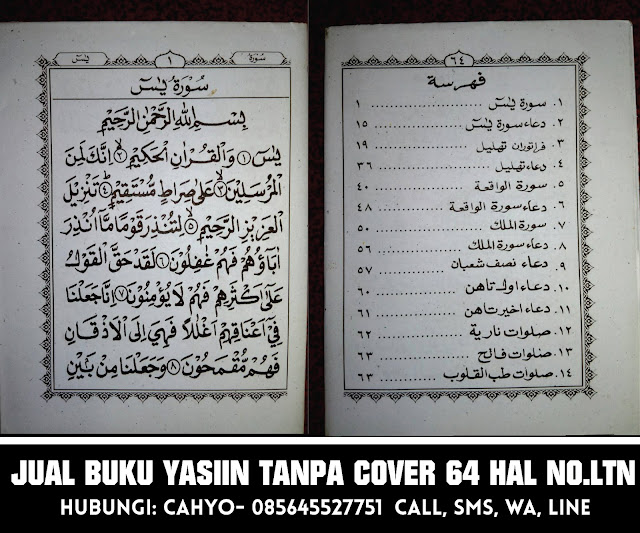 سورة
١
يسٓ
سُوْرَةُ يٰسٓ
بِسْمِ اللهِ الرَّحْمٰنِ الرَّحِيْمِ
يٰسٓ ١ وَالْقُرْاٰنِ الْحَكِيْمِ ٢ اِنَّكَ لَمِنَ
الْمُرْسَلِيْنَ ٣ عَلٰى صِرَاطٍ مُّسْتَقِيْمٍ ٤ تَنْزِيْلَ
الْعَزِيْزِ الرَّحِيْمِ ٥ لِتُنْذِرَ قَوْمًا مَّا اُنْذِرَ
اٰبَاؤُهُمْ فَهُمْ غٰفِلُوْنَ ٦ لَقَدْ حَقَّ الْقَوْلُ
عَلٰى اَكْثَرِهِمْ فَهُمْ لَا يُؤْمِنُوْنَ ٧ اِنَّا جَعَلْنَا
فِيْ اَعْنَاقِهِمْ اَغْلٰلًا فَهِيَ اِلَى الْاَذْقَانِ
فَهُمْ مُّقْمَحُوْنَ ٨ وَجَعَلْنَا مِنْ بَيْنِ
٦٤
فهرسة
١. سورة يٰسٓ .......... ١
٢. دعاء سورة يٰسٓ .......... ١٥
٣. فراتوران تهليل .......... ١٩
٤. دعاء تهليل .......... ٣٦
٥. سورة الواقعة .......... ٤٠
٦. دعاء سورة الواقعة .......... ٤٨
٧. سورة الملك .......... ٥٠
٨. دعاء سورة الملك .......... ٥٦
٩. دعاء نصف شعبان .......... ٥٧
١٠. دعاء اول تاهن .......... ٦٠
١١. دعاء اخير تاهن .......... ٦١
١٢. صلوات نارية .......... ٦٢
١٣. صلوات فالح .......... ٦٣
١٤. صلوات طب القلوب .......... ٦٣
JUAL BUKU YASIIN TANPA COVER 64 HAL NO.LTN
HUBUNGI: CAHYO- 085645527751 CALL, SMS, WA, LINE